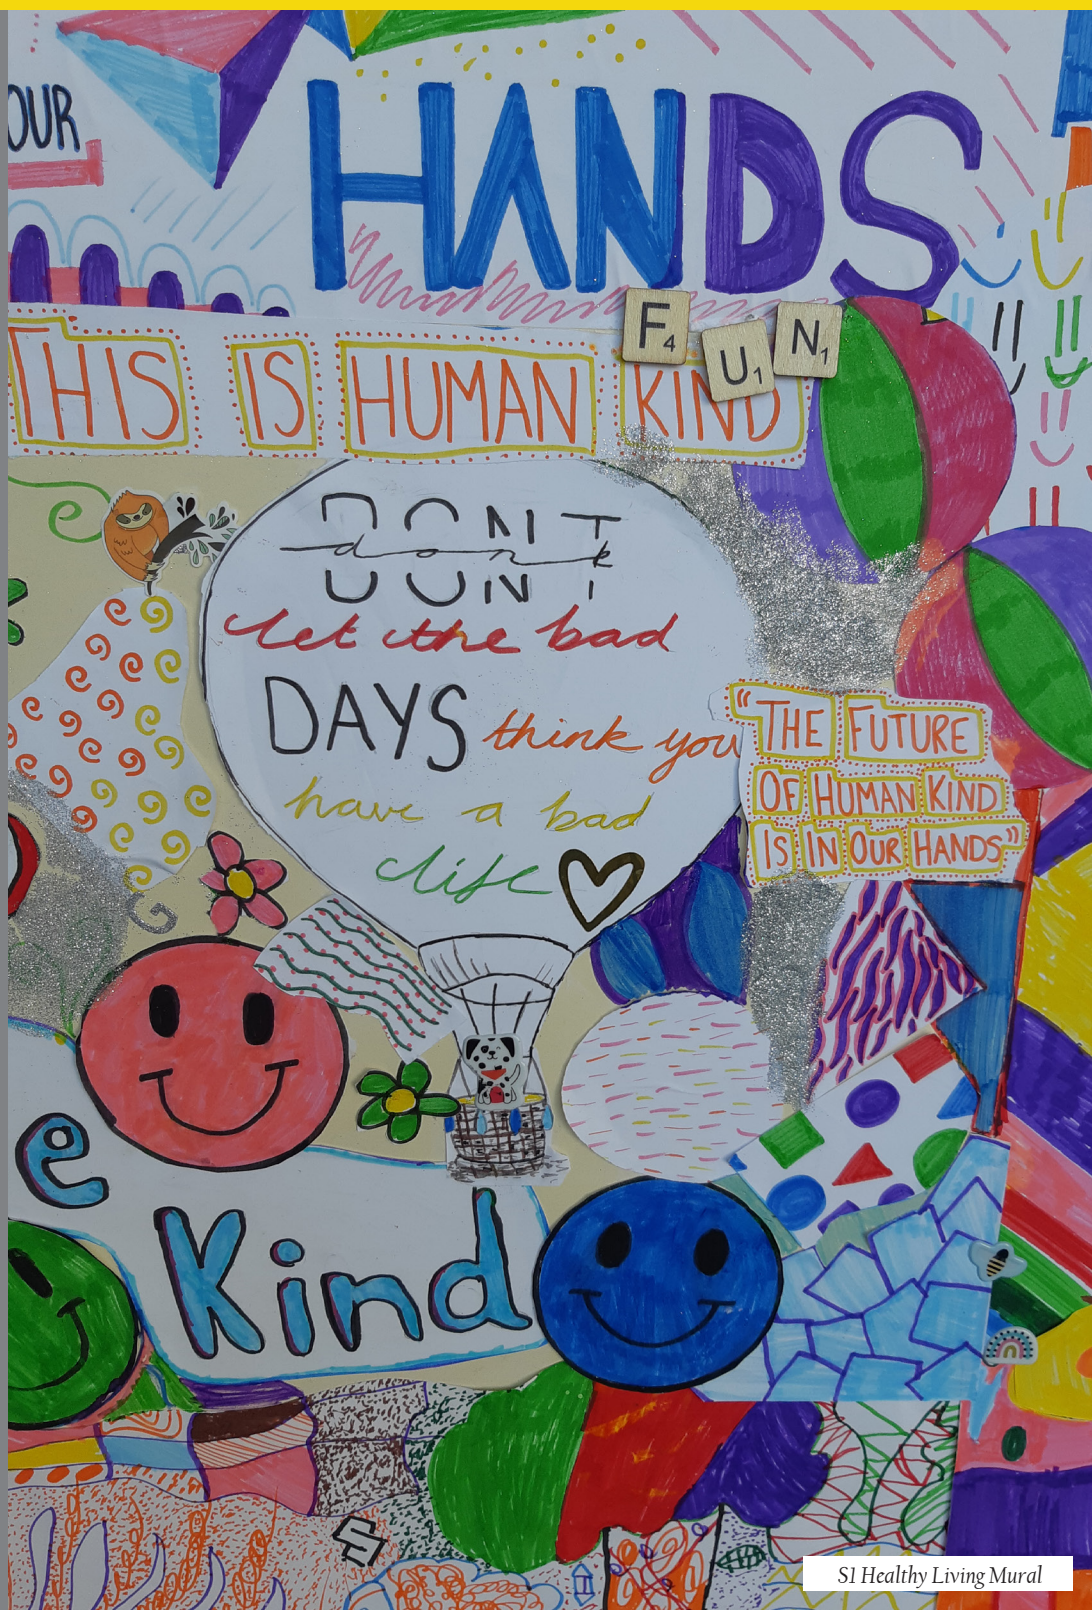 OUR
HANDS
F4 U1 N1
THIS IS HUMAN KIND
DONT
dont
let the bad
DAYS think you
have a bad
life
"THE FUTURE
OF HUMAN KIND
IS IN OUR HANDS"
e
Kind
S
S1 Healthy Living Mural